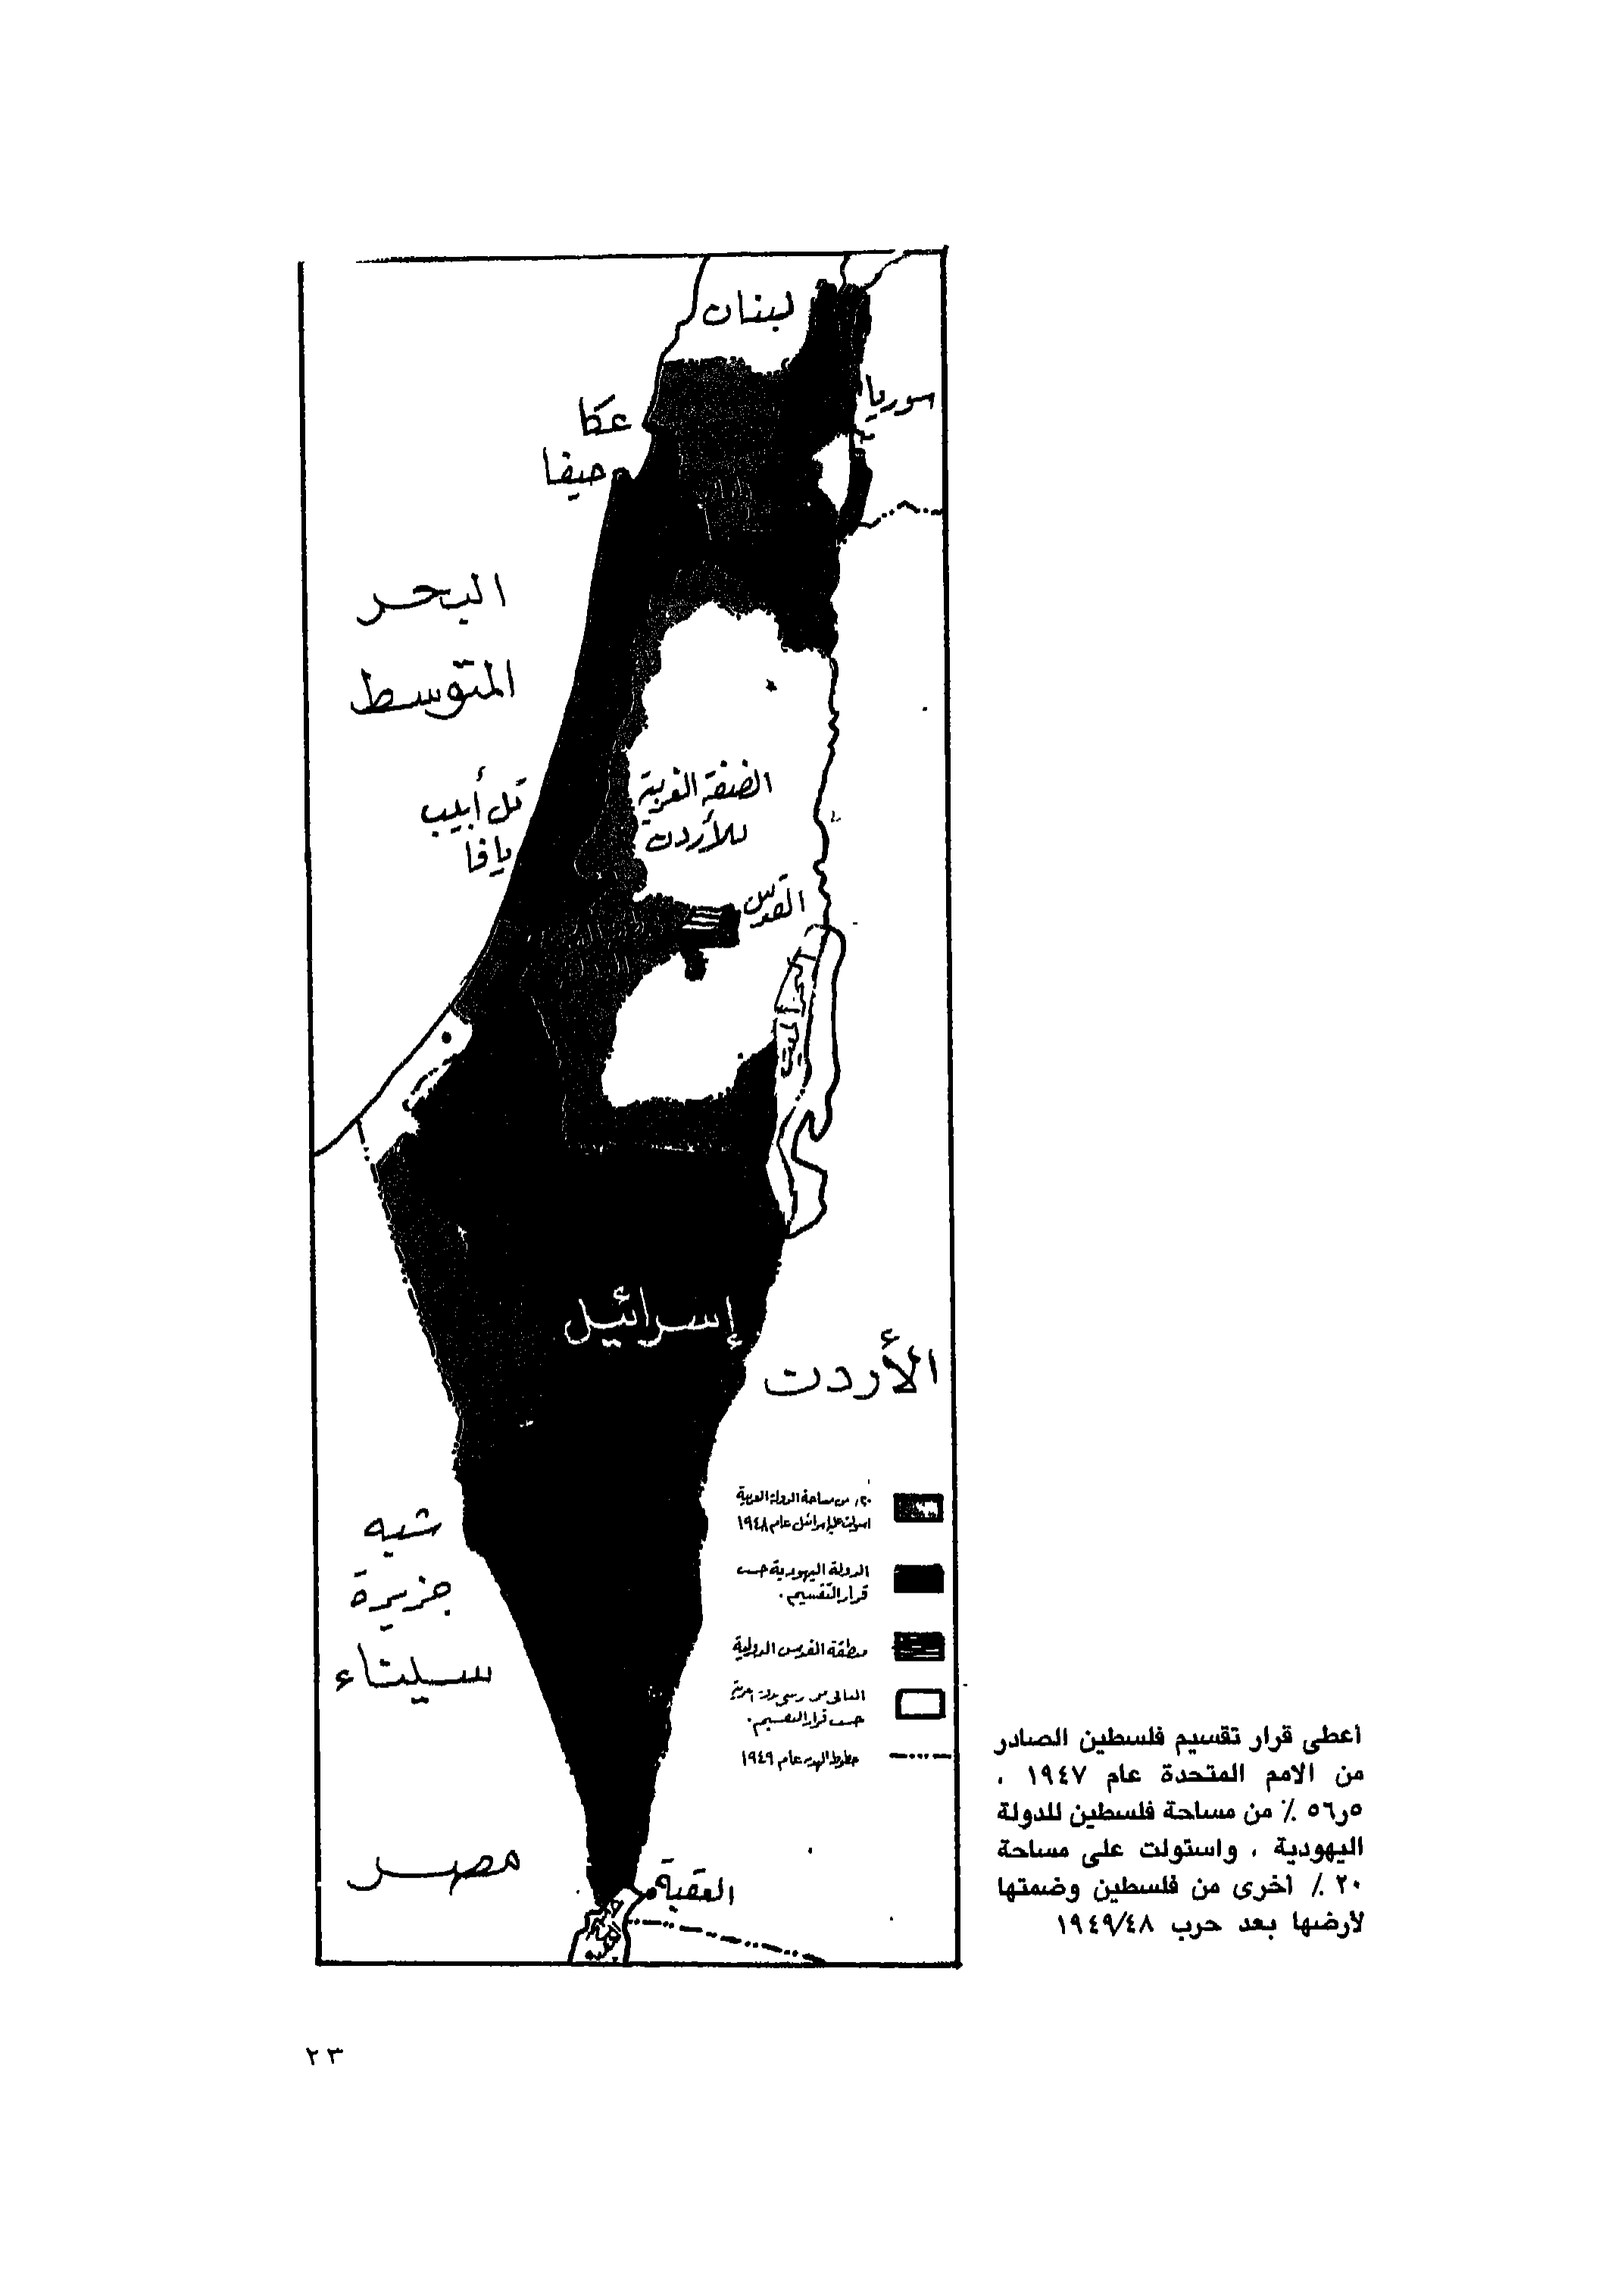 لبنان
سوريا
عكا
حيفا
البحر
المتوسط
تل أبيب
يافا
الضفة الغربية
للأردن
القدس
البحر الميت
إسرائيل
الأردن
٢٠٪ من مساحة الدولة العربية
استولت عليها إسرائيل عام ١٩٤٨
الدولة اليهودية حسب
قرار التقسيم .
منطقة القدس الدولية
حسب قرار التقسيم .
خطوط الهدنه عام ١٩٤٩
شبه
جزيرة
سيناء
مصر
العقبة
أعطى قرار تقسيم فلسطين الصادر
من الامم المتحدة عام ١٩٤٧ ،
٥ر٥٦ ٪ من مساحة فلسطين للدولة
اليهودية ، واستولت على مساحة
٢٠ ٪ أخرى من فلسطين وضمتها
لأرضها بعد حرب ١٩٤٩/٤٨
٢٣